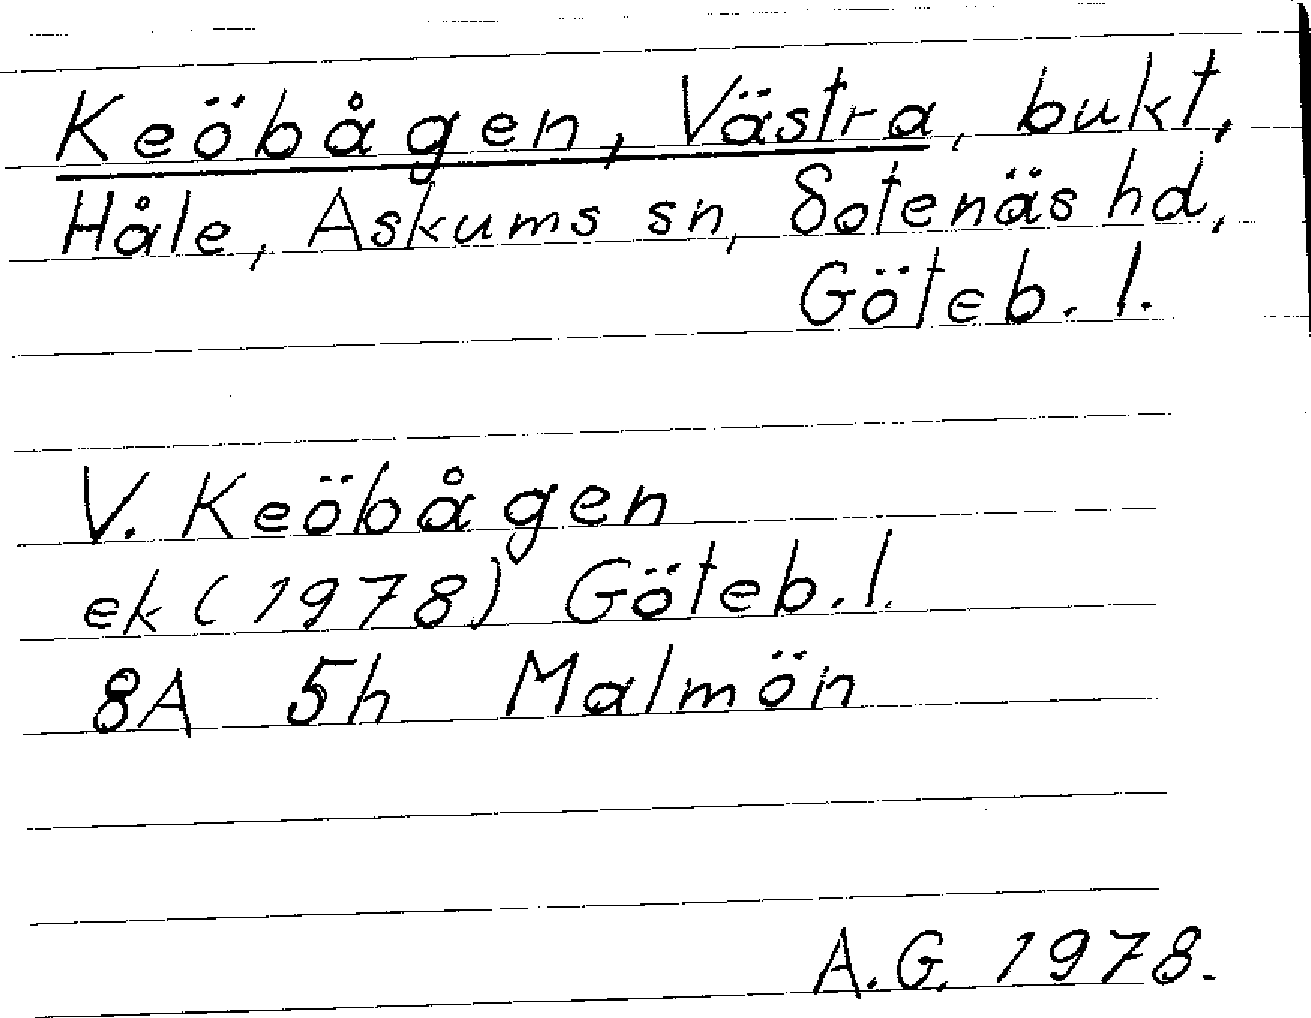 Keöbågen, Västra, bukt,
Håle, Askums sn, Sotenäs hd,
Göteb. l.
V. Keöbågen
ek (1978) Göteb. l.
8A 5h Malmön
A.G. 1978.